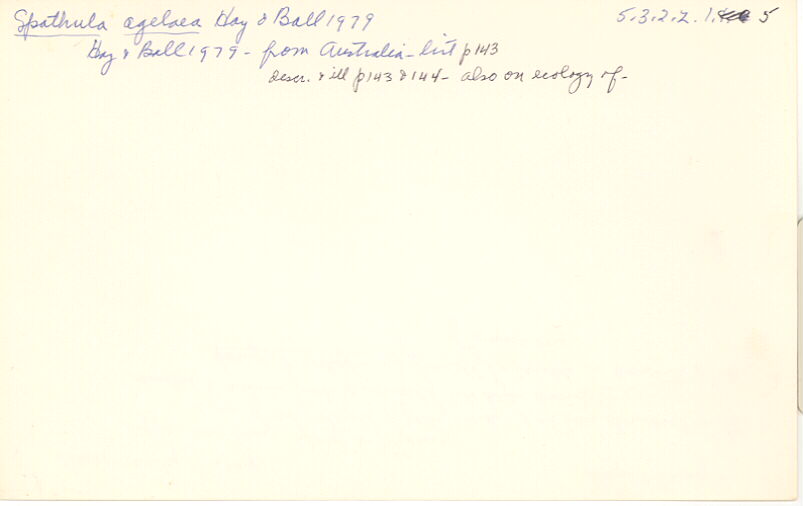 Spathula agelaea Hay & Ball 1979 5.3.2.2.1. 5
Hay & Ball 1979 - from Australia - list p143
descr. & ill p143 & 144 - also on ecology of -